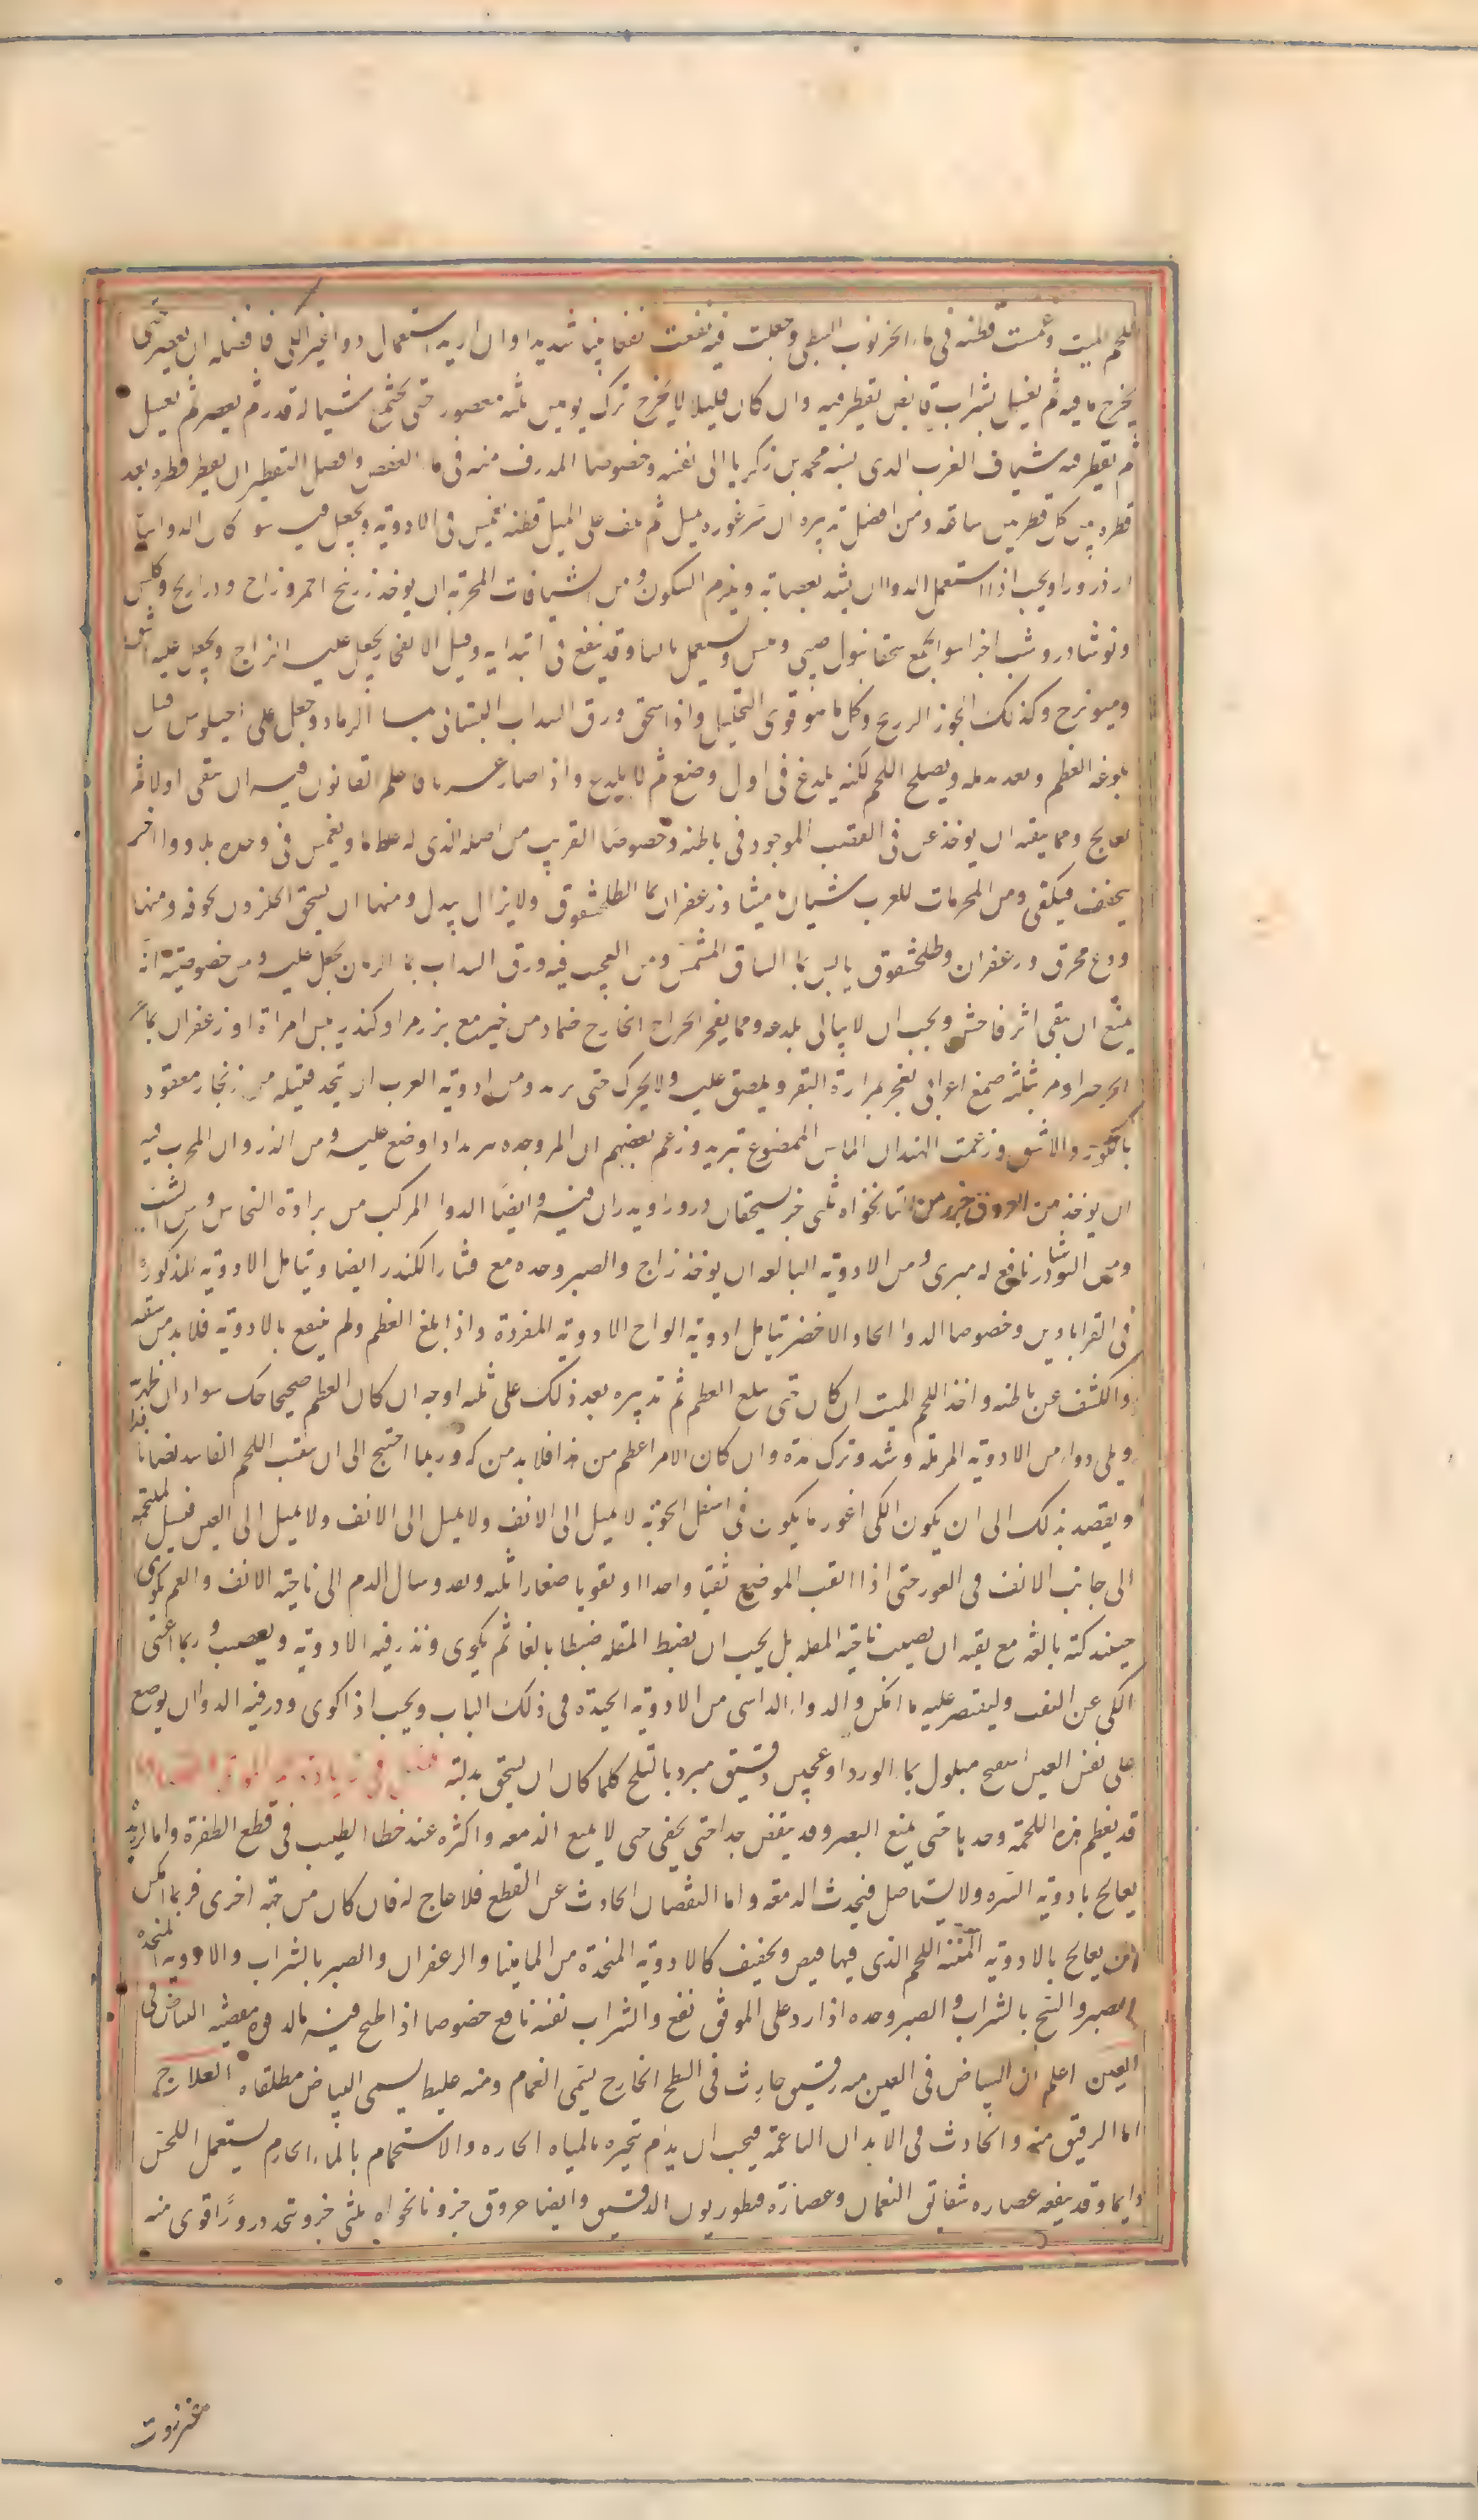 اللحم الميت وغمست قطنه فى ماء الخرنوب النبطى وجعلت فيه نفعت نفعا بينا شديدا وان اريد استعمال دواء غير الكى فافضله ان يعصر حتى
يخرج ما فيه ثم يغسل بشراب قابض يقطر فيه وان كان قليلا لا يخرج ترك يومين ثلثه معصور حتى يجتمع شيا له قدر ثم يعصر ثم يغسل
ثم يقطر فيه شياف الغرب الدى ينسبه محمد بن زكريا الى نفسه وخصوصا المدوف منه فى ماء العفص وافضل التقطير ان يقطر قطره بعد
قطره بين كل قطرتين ساعه ومن افضل تدبيره ان يسبر غوره بميل ثم يلف على الميل قطنه تغمس فى الادويه ويجعل فيه سوا كان الدوا سيالا
او ذرورا ويجب اذا استعمل الدوا ان يشد بعصابه ويلزم السكون ومن الشيافات المجربه ان يوخذ زرنيخ احمر وزاج وذراريح وكلس
ونوشادر وشب اجزا سوا يجمع سحقا ببول صبى وييبس ويستعمل يابسا وقد ينفع فى ابتدايه وقبل الانفجار يجعل عليه الزاج ويجعل عليه اشق
وميويزج وكذلك الجوز الزنخ وكل ما هو قوى التحليل واذا سحق ورق السداب البستانى بماء الرماد وجعل على اخيلوس قبل
بلوغه العظم وبعده يدمله ويصلح اللحم لكنه يلدغ فى اول وضع ثم لا يلدغ واذا صار غربا فاعلم القانون فيه ان ينقى اولا ثم
يعالج ومما ينقيه ان يوخذ غرقى القصب الموجود فى باطنه وخصوصا القريب من اصله الذى له غلظ ما ويغمس فى وحده بلا دوا اخر
يجفف فيكفى ومن المجربات للغرب شياف ماميثا وزعفران بماء الطلخشقوق ولا يزال يبدل ومنها ان يسحق الحلزون بجوفه ومنها
ودع محرق وزعفران وطلخشقوق يابس بماء السماق المشمس ومن العجيب فيه ورق السداب بماء الرمان يجعل عليه ومن خصوصيته انه
يمنع ان يبقى اثر فاحش ويجب ان لا يبالى بلدعه ومما يفجر الخراج الخارج ضماد من خبز مع بزر مرو او كندر بلبن امراة او زعفران بماء
الجرجير او مر بثلثه صمغ اعرابى يعجن بمرارة البقر ويلصق عليه ولا يحرك حتى يبرء ومن ادويه الغرب ان يتخذ فتيله من زنجار معقود
بالكور والاشق وزعمت الهند ان الماش الممضوغ تبريه وزعم بعضهم ان المر وحده يبريه اذا وضع عليه ومن الذروران المجرب فيه
ان يوخذ من العروق جزء من النانخواه ثلثى جز يسحقان ذرورا ويذران فيه وايضا الدوا المركب من براده النحاس ومن الشب
ومن النوشادر نافع له مبرى ومن الادويه البالغه ان يوخذ زاج والصبر وحده مع قشار الكندر ايضا وتامل الادويه المذكوره
فى القراباذين وخصوصا الدوا الحاد الاخضر تامل ادويه الواح الادويه المفرده واذا بلغ العظم ولم ينتفع بالادويه فلا بد من شقه
والكشف عن باطنه واخذ اللحم الميت ان كان حتى يبلغ العظم ثم تدبيره بعد ذلك على ثلثه اوجه ان كان العظم صحيحا حك سواد ان ظهر به
وملى دواء من الادويه المدمله وشد وترك مدة وان كان الامر اعظم من هذا فلا بد من كه وربما احتيج الى ان يثقب اللحم الفاسد ايضا
ويقصد بذلك الى ان يكون الكى اغور ما يكون فى اسفل الجوبه لا يميل الى الانف ولا يميل الى الانف ولا يميل الى العين فيسيل الملتحمه
الى جانب الانف فى الغور حتى اذا انثقب الموضع ثقبا واحدا او ثقوبا صغارا ثلثه ونفذ وسال الدم الى ناحيه الانف والفم كوى
حينئذ كيه بالغه مع تقيه ان يصيب ناحيه المقله بل يجب ان يضبط المقله ضبطا بالغا ثم يكوى ونذر فيه الادويه ويعصب وربما اغنى
الكى عن الثقب وليقتصر عليه ما امكن والدواء الراسى من الادويه الجيده فى ذلك الباب ويجب اذا كوى وذر فيه الدوا ان يوضع
على نفس العين اسفنج مبلول بماء الورد او عجين دقيق مبرد بالثلج كلما كاد ان يسخن بدلته
قد تعظم هذه اللحمه وحدها حتى يمنع البصر وقد ينقص جدا حتى يخفى حتى لا يمنع الدمعه واكثره عند خطا الطبيب فى قطع الظفرة واما الزيادة
يعالج بادويه السره ولا يستاصل فيحدث الدمعه واما النقصان الحادث عن القطع فلا علاج له فان كان من جهه اخرى فربما امكن
ان يعالج بالادويه المنبته اللحم الذى فيها قبض وتجفيف كالادويه المتخذة من الماميثا والزعفران والصبر بالشراب والادويه المتخذه
الصبر والبنج بالشراب والصبر وحده اذا رد على الموق نفع والشراب نفسه نافع خصوصا اذا طبخ فيه ماله قوه مقبضه البياض فى
العين اعلم ان البياض فى العين منه رقيق حادث فى السطح الخارج يسمى الغمام ومنه غليظ يسمى البياض مطلقا العلاج
اما الرقيق منه والحادث فى الابدان الناعمه فيجب ان يدام تبخيره بالمياه الحاره والاستحمام بالماء الحار ثم يستعمل اللحس
دايما وقد ينفعه عصاره شقايق النعمان وعصارة قنطوريون الدقيق وايضا عروق جز ونانخواه ثلثى جز ويتخذ ذرورا اقوى منه